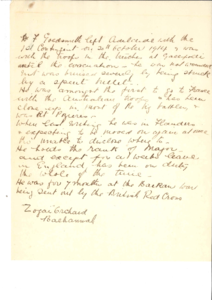 Dr F Goldsmith left Australia with the
1st Contingent on 20th October 1914 & was
with the troops in the trenches at Gallipoli
until the evacuation - he was not wounded
but was bruised severely by being struck
by a spent bullet.
He was amongst the first to go to France
with the Australian troops & has been
close up in most of the big battles
was at Pozieres
When last writing he was in Flanders
& expecting to be moved on again at once
tho' unable to disclose where to.
He holds the rank of Major
and except for a week's leave
in England has been on duty
the whole of the time
He was for 7 months at the Balkan War
being sent out by the British Red Cross